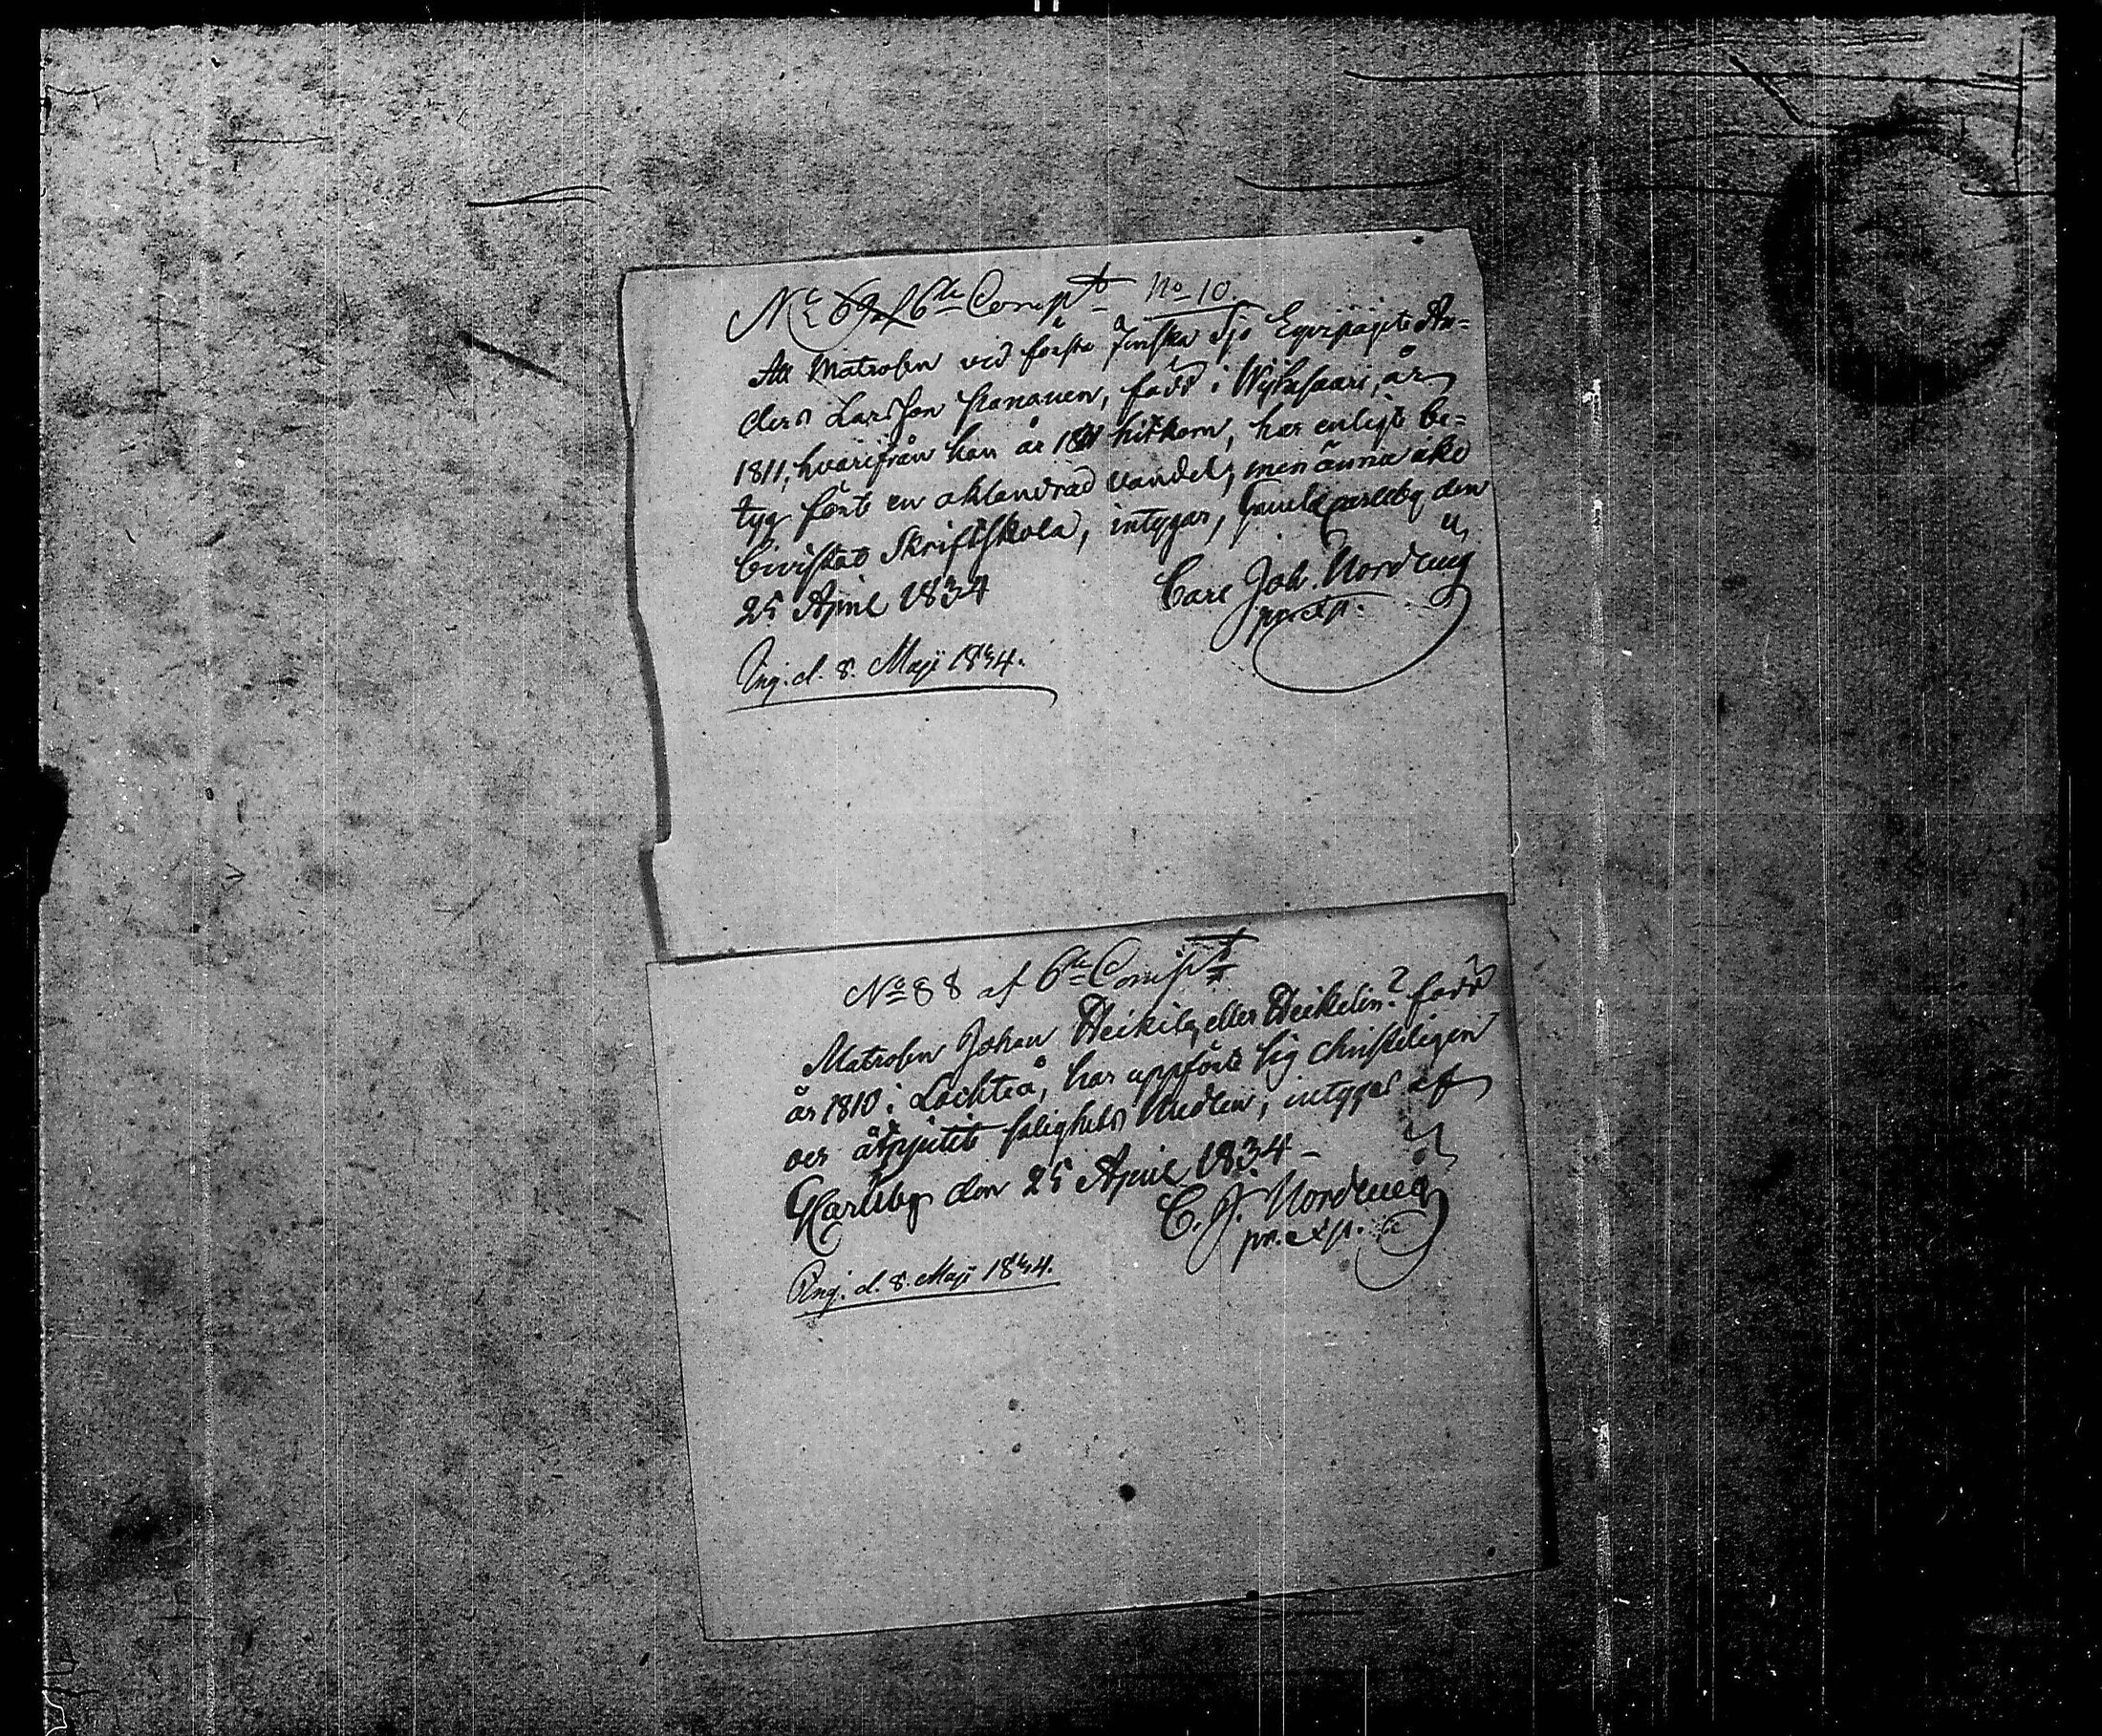 No 69 af 6te Compt No 10.
Att Matrosen vid första Finska Sjö Equipaget An=
ders Larsson Hananen, född i Wijtasaari, år
1811, hvarifrån han år hitkom, har enligt be=
tyg fört en oklandrad vandel, men ännu icke
bevistat Skriftskola, intygar, Gamlacarleby den
25 April 1834
Carl Joh. Nordling
pr. exp.
Ing. d. 8. Maji 1834.
No 88 af 6te Compt
Matrosen Johan Heikily eller Heikelin? född
år 1810 i Lochteå, har uppfört sig christeligen
och åtnjutit salighets Medlen, intygas af
GKarleby den 25 April 1834
C. J. Nordling
pr. exp.
Ing. d. 8. Maji 1834.